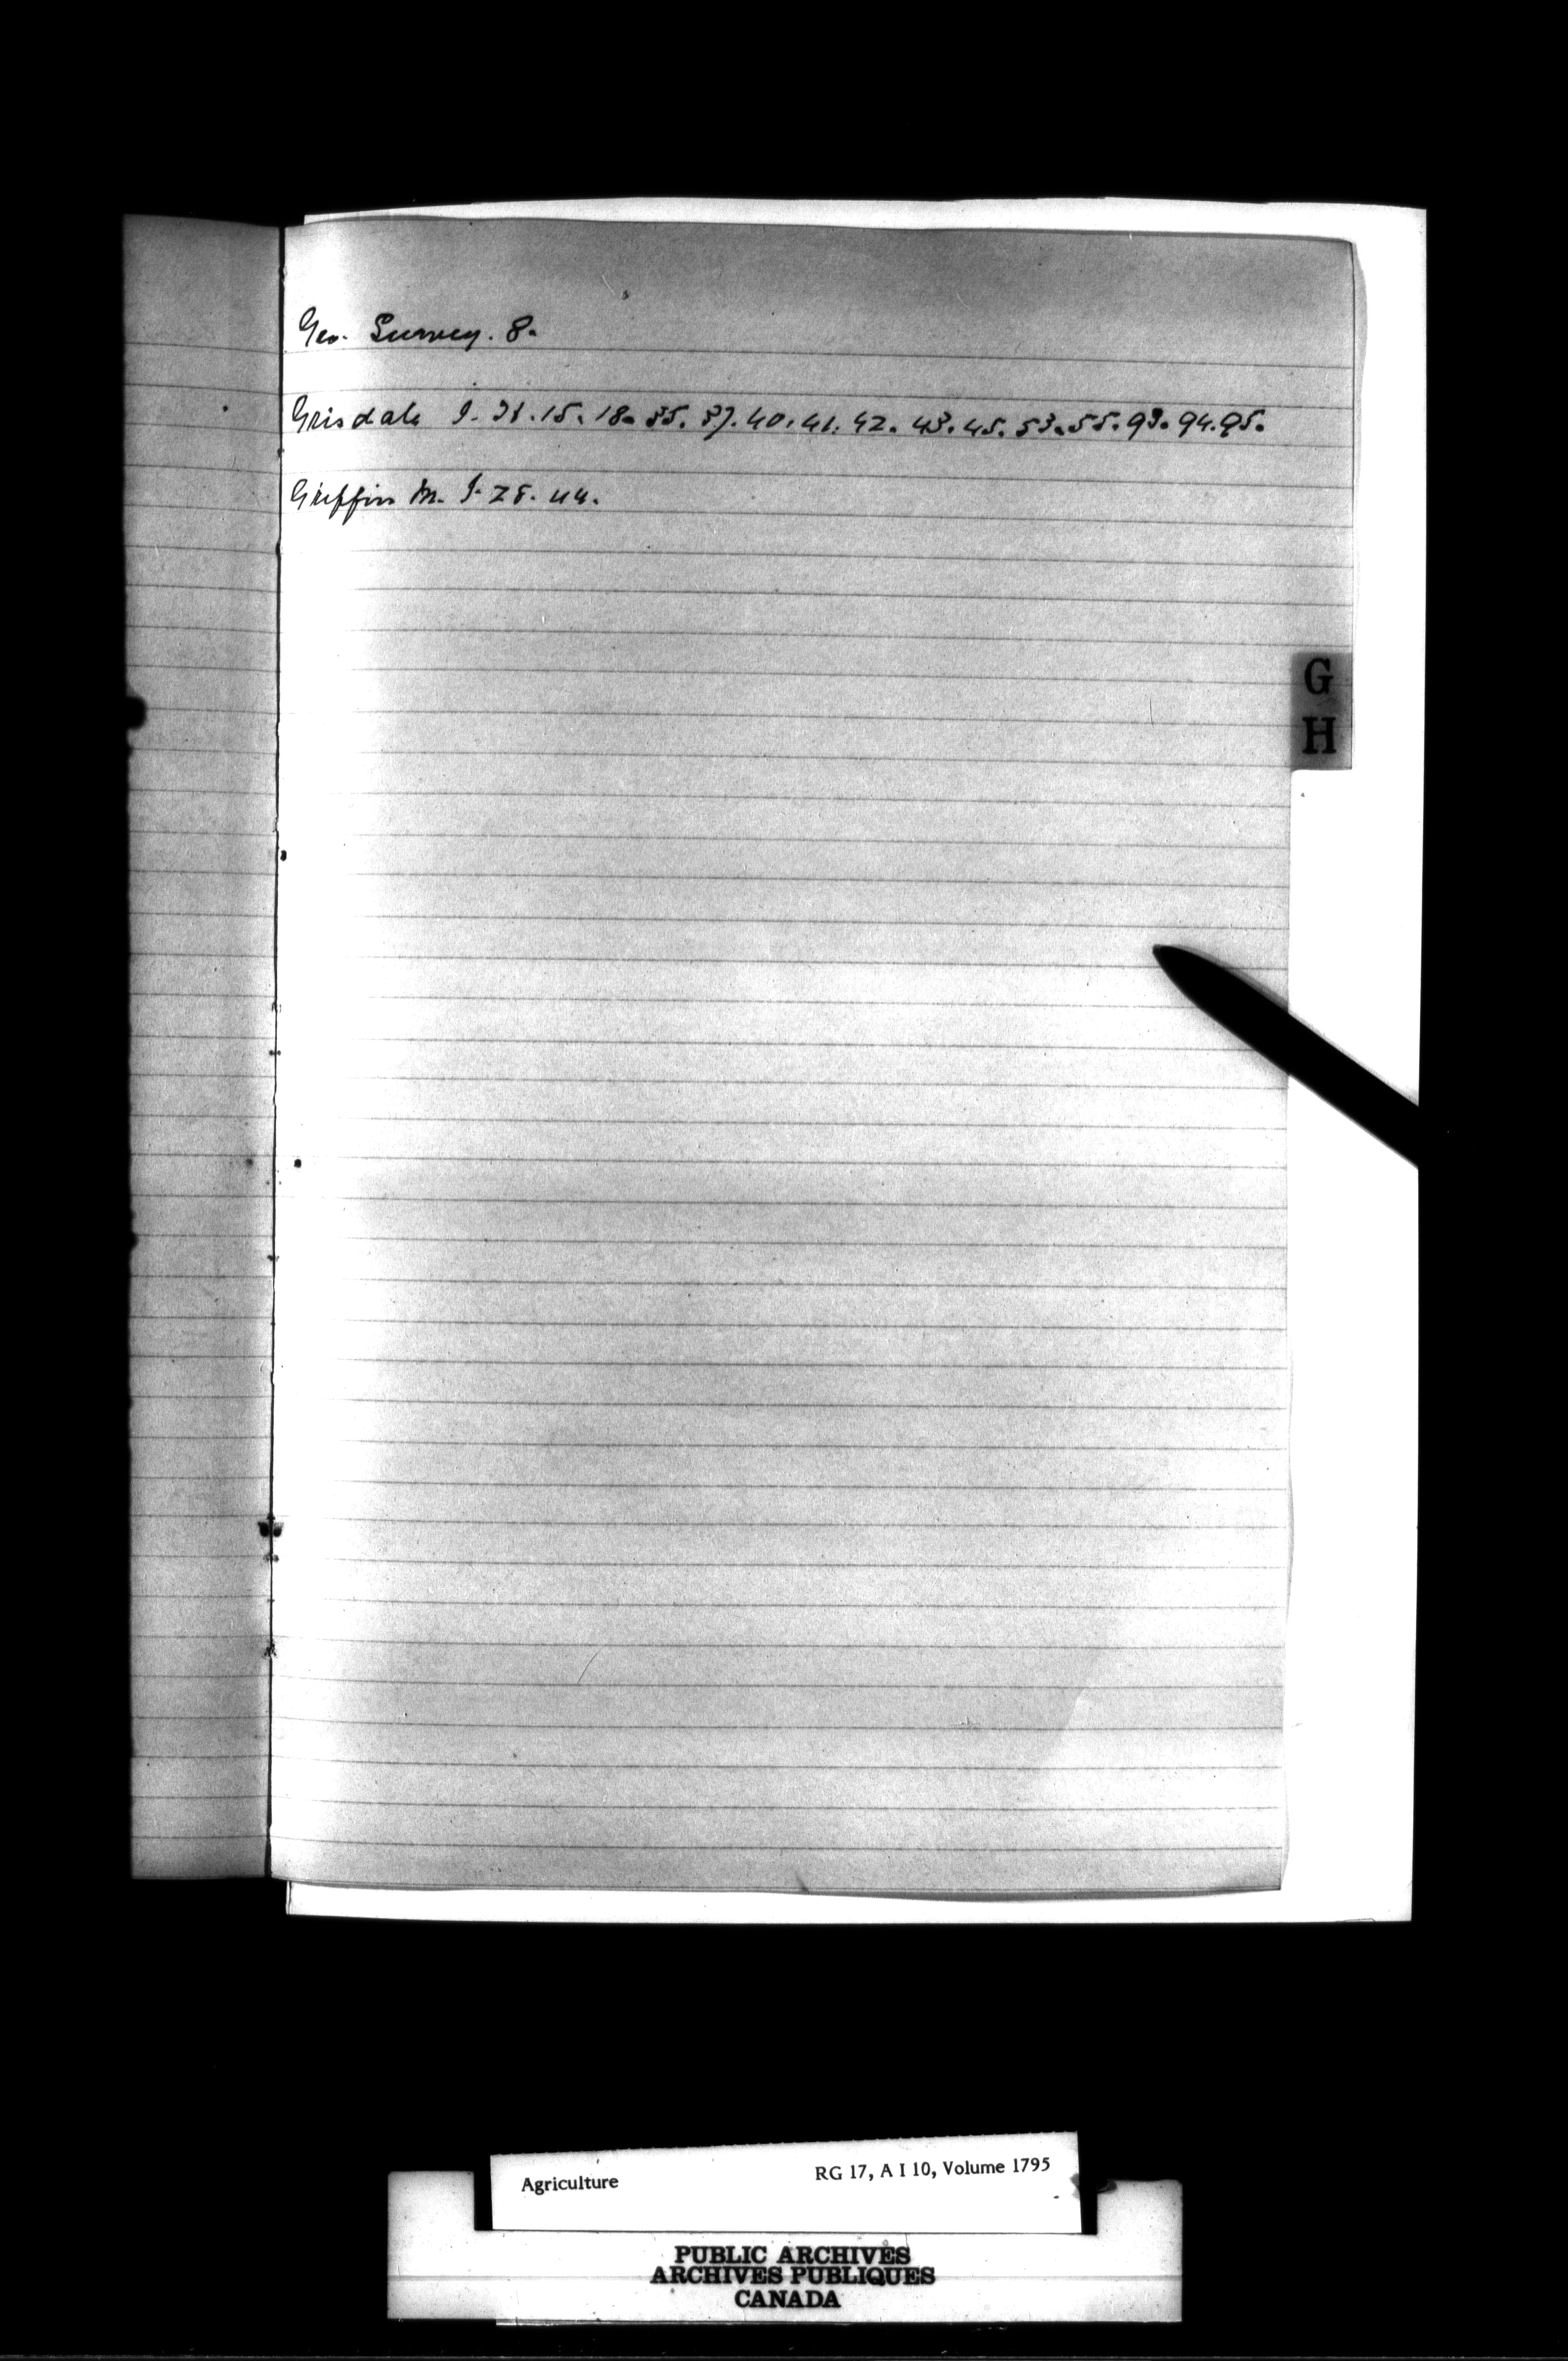 Geo. Survey. 8.
Grisdale J. H. 15. 18. 35. 37. 40. 41. 42. 43. 45. 53. 55. 93. 94. 95.
Griffin M. J. 28. 44.
G
H
Agriculture RG 17, A I 10, Volume 1795
PUBLIC ARCHIVES
ARCHIVES PUBLIQUES
CANADA